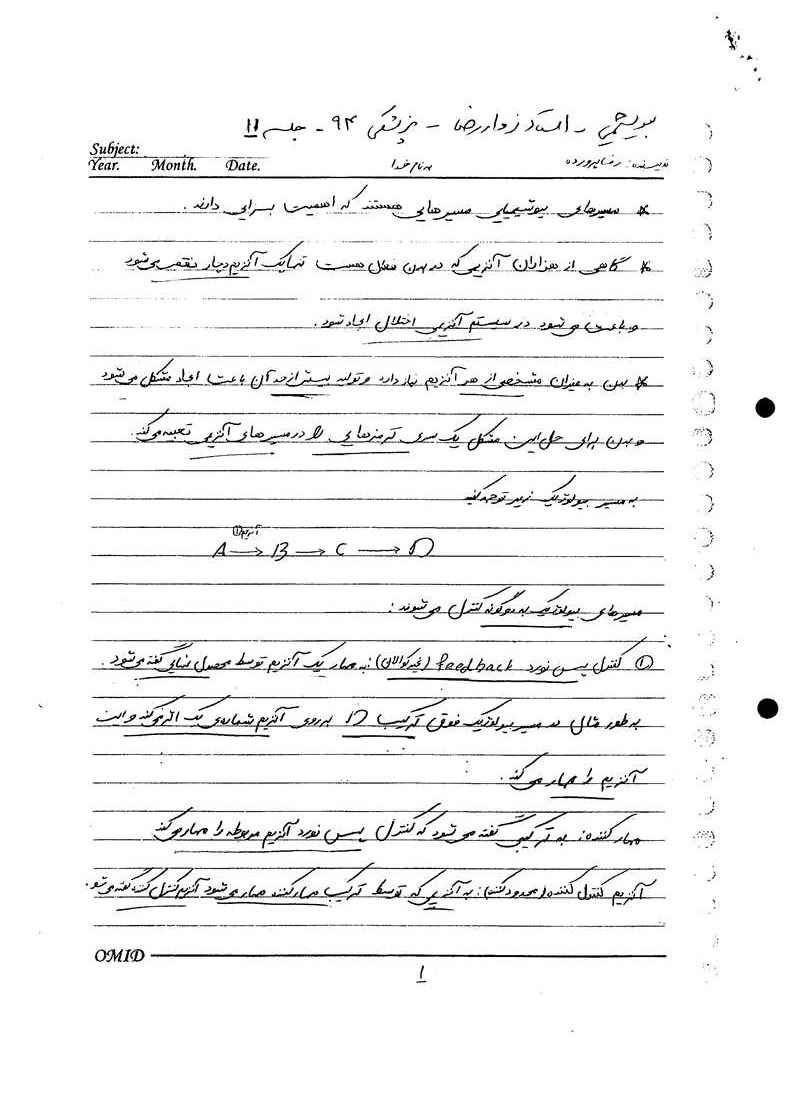 بیوشیمی - استاد زوار رضا - پزشکی ۹۴ - جلسه ۱۱
Subject:
Year. Month. Date.
به نام خدا
نویسنده: رضا پرورده
* مسیرهای بیوشیمیایی مسیرهایی هستند که اهمیت بسزایی دارند.
* گاهی از هزاران آنزیمی که در بدن فعال هست تنها یک آنزیم دچار نقص می‌شود
و باعث می‌شود در سیستم آنزیمی اختلال ایجاد شود.
* بدن به میزان مشخصی از هر آنزیم نیاز دارد و تولید بیشتر از حد آن باعث ایجاد مشکل می‌شود
و بدن برای حل این مشکل یک سری ترمزهایی را در مسیرهای آنزیمی تعبیه می‌کند.
به مسیر بیولوژیک زیر توجه کنید
آنزیم ①
A → B → C → D
مسیرهای بیولوژیک به دو گونه کنترل می‌شوند:
① کنترل پس نورد feedback (غیرکوالان): به مهار یک آنزیم توسط محصول نهایی گفته می‌شود.
به طور مثال در مسیر بیولوژیک فوق ترکیب D به روی آنزیم شماره‌ی یک اثر می‌کند و این
آنزیم را مهار می‌کند.
مهارکننده: به ترکیبی گفته می‌شود که کنترل پس نورد آنزیم مربوطه را مهار می‌کند
آنزیم کنترل کننده (محدودکننده): به آنزیمی که توسط ترکیب مهارکننده مهار می‌شود آنزیم کنترل کننده گفته می‌شود.
OMID
۱